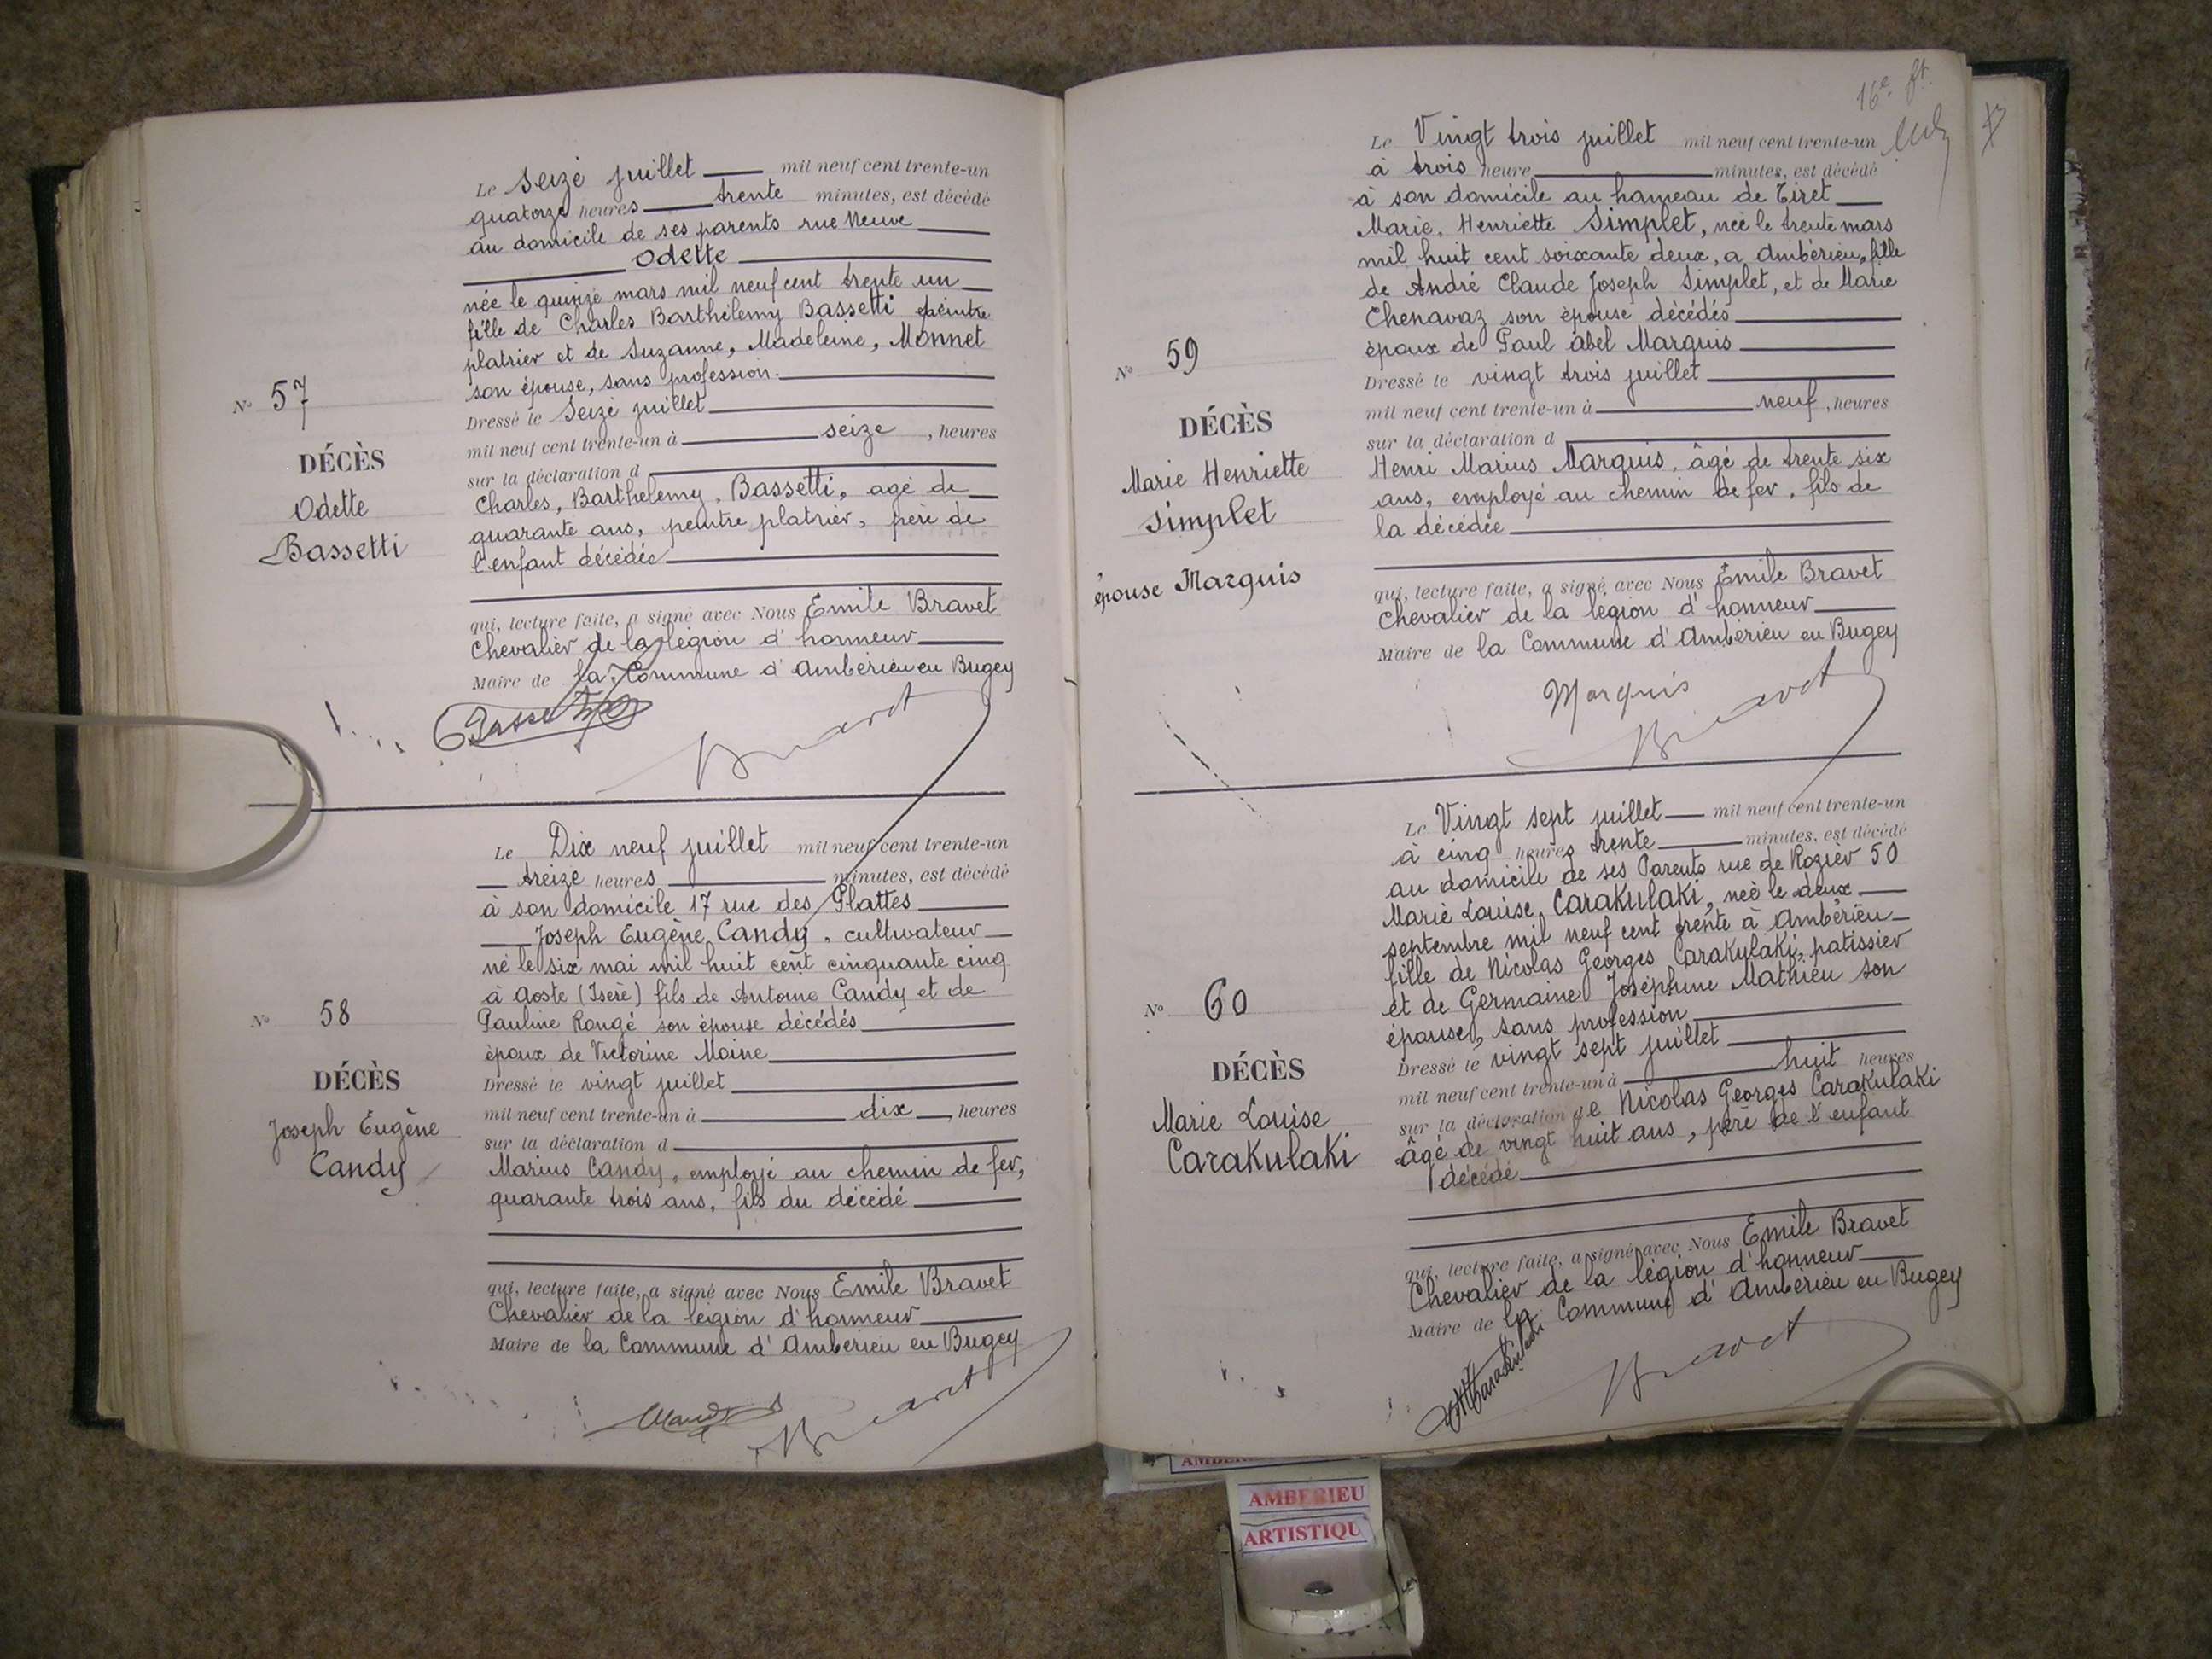 Le Seize juillet mil neuf cent trente-un
quatorze heures trente minutes, est décédé
au domicile de ses parents rue Neuve
Odette
née le quinze mars mil neuf cent trente un
fille de Charles Barthélemy Bassetti peintre
platrier et de Suzanne, Madeleine, Monnet
son épouse, sans profession.
Dressé le Seize juillet
mil neuf cent trente-un à seize, heures
sur la déclaration d
Charles, Barthelemy, Bassetti, agé de
quarante ans, peintre platrier, père de
l'enfant décédée
qui, lecture faite, a signé avec Nous Emile Bravet
Chevalier de la légion d'honneur
Maire de la Commune d'Ambérieu en Bugey
Bassetti
Bravet
N° 57
DÉCÈS
Odette
Bassetti
Le Dix neuf juillet mil neuf cent trente-un
treize heures minutes, est décédé
à son domicile 17 rue des Plattes
Joseph Eugène Candy, cultivateur
né le six mai mil huit cent cinquante cinq
à Aoste (Isère) fils de Antoine Candy et de
Pauline Rongé son épouse décédés
époux de Victorine Moine
Dressé le vingt juillet
mil neuf cent trente-un à dix, heures
sur la déclaration d
Marius Candy, employé au chemin de fer,
quarante trois ans, fils du décédé
qui, lecture faite, a signé avec Nous Emile Bravet
Chevalier de la légion d'honneur
Maire de la Commune d'Ambérieu en Bugey
Bravet
N° 58
DÉCÈS
Joseph Eugène
Candy
16e ft.
Le Vingt trois juillet mil neuf cent trente-un
à trois heure minutes, est décédé
à son domicile au hameau de Tiret
Marie, Henriette Simplet, née le trente mars
mil huit cent soixante deux, a Ambérieu, fille
de André Claude Joseph Simplet, et de Marie
Chenavaz son épouse décédés
époux de Paul Abel Marquis
Dressé le vingt trois juillet
mil neuf cent trente-un à neuf, heures
sur la déclaration d
Henri Marius Marquis, âgé de trente six
ans, employé au chemin de fer, fils de
la décédée
qui, lecture faite, a signé avec Nous Emile Bravet
Chevalier de la légion d'honneur
Maire de la Commune d'Ambérieu en Bugey
Marquis
Bravet
N° 59
DÉCÈS
Marie Henriette
Simplet
épouse Marquis
Le Vingt sept juillet mil neuf cent trente-un
à cinq heures trente minutes, est décédé
au domicile de ses Parents rue de Rozier 50
Marie Louise Carakulaki, née le deux
septembre mil neuf cent trente à Ambérieu
fille de Nicolas Georges Carakulaki, patissier
et de Germaine Joséphine Mathieu son
épouse, sans profession
Dressé le vingt sept juillet
mil neuf cent trente-un à huit heures
sur la déclaration de Nicolas Georges Carakulaki
âgé de vingt huit ans, père de l'enfant
décédé
qui, lecture faite, a signé avec Nous Emile Bravet
Chevalier de la légion d'honneur
Maire de la Commune d'Ambérieu en Bugey
Bravet
N° 60
DÉCÈS
Marie Louise
Carakulaki
AMBERIEU
ARTISTIQU